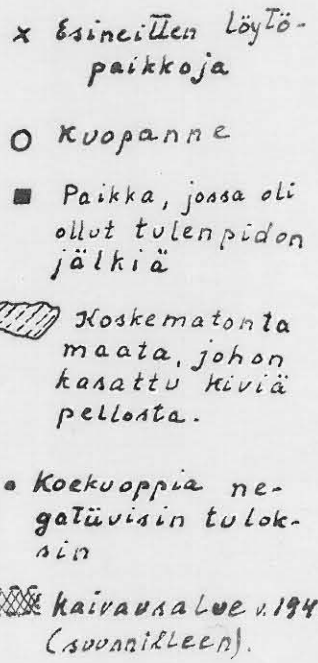 x Esineitten Löytö-
paikkoja
Kuopanne
Paikka, jossa oli
ollut tulenpidon
jälkiä
Koskematonta
maata, johon
kasattu kiviä
pellosta.
Koekuoppia ne-
gatiivisin tulok-
sin
kaivausalue v. 194
(suunnilleen).